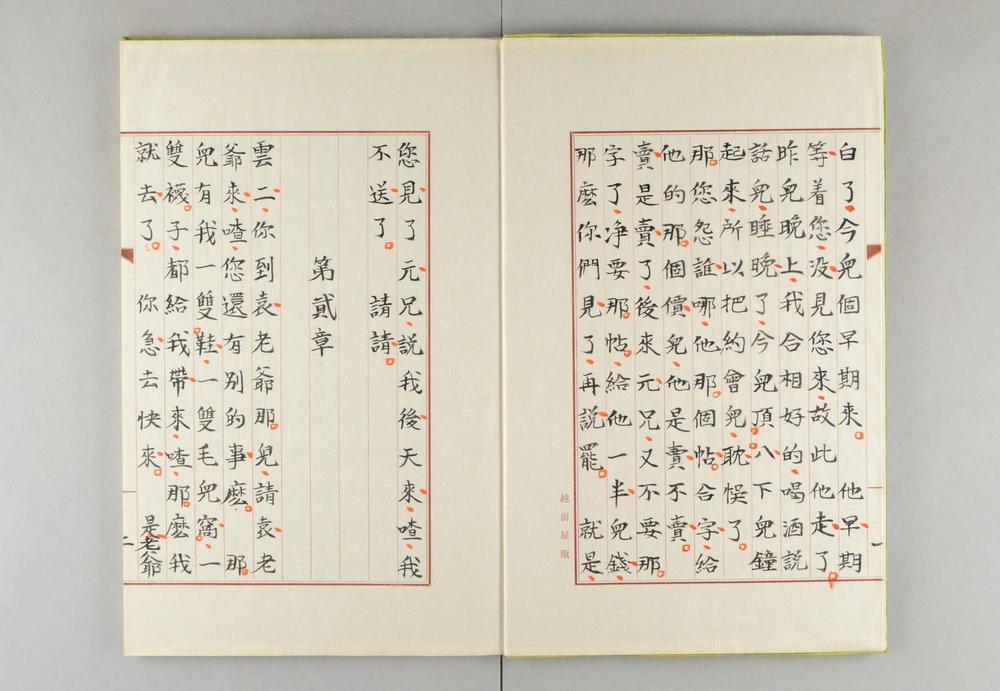 白了今兒個早期來 他早期
等着您没見您來故此他走了
昨兒晚上我合相好的喝酒説
話兒睡晚了今兒頂八下兒鐘
起來所以把約會兒耽悮了
那您怨誰哪他那個帖合字給
他的那個價兒他是賣不賣那
賣是賣了後來元兄又不要那
字了净要那帖給他一半兒錢
那麽你們見了再説罷 就是
越前屋版
一
您見了元兄説我後天來喳我
不送了 請請
第貳章
雲二你到袁老爺那兒請袁老
爺來喳您還有别的事麽 那
兒有我一雙鞋一雙毛兒窩一
雙襪子都給我帶來喳那麽我
就去了 你急去快來 是老爺
二